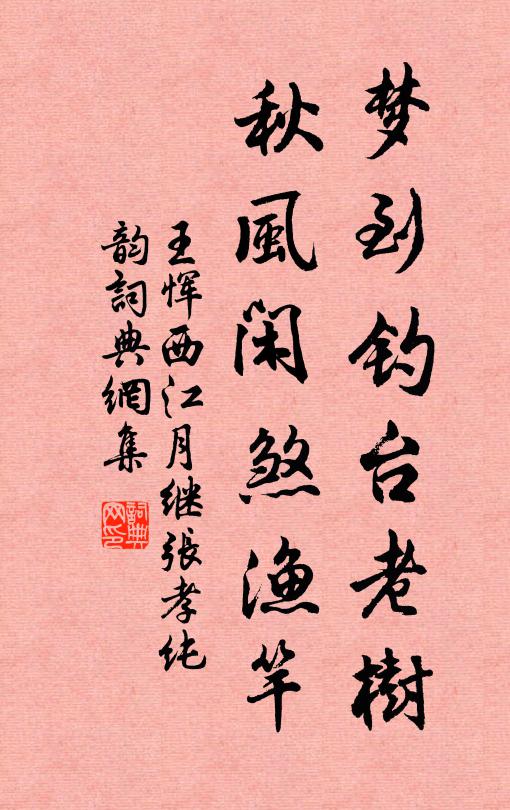 梦到钓台老樹
秋風閑煞漁竿
王恽西江月继張孝纯
韵詞典網集
詞典网印